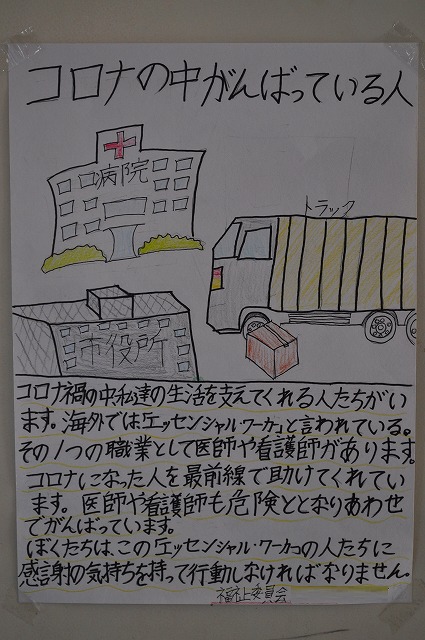 コロナの中がんばっている人
病院
トラック
市役所
コロナ禍の中私達の生活を支えてくれる人たちがい
ます。海外では「エッセンシャル・ワーカー」と言われている。
その1つの職業として医師や看護師があります。
コロナになった人を最前線で助けてくれてい
ます。医師や看護師も危険ととなりあわせ
でがんばっています。
ぼくたちは、この「エッセンシャル・ワーカー」の人たちに
感謝の気持ちを持って行動しなければなりません。
福祉委員会